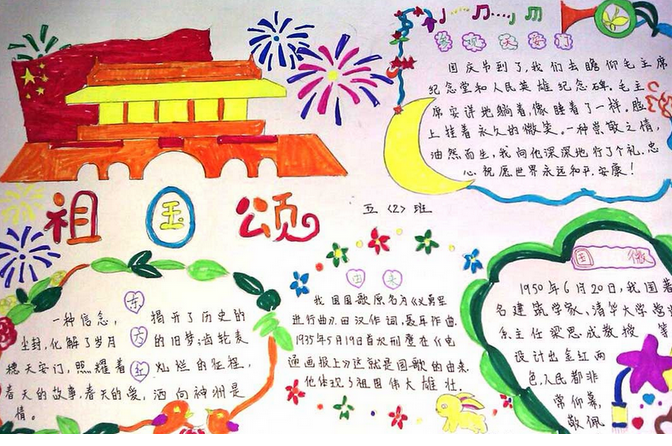 参观天安门
国庆节到了,我们去瞻仰毛主席
纪念堂和人民英雄纪念碑。毛主
席安详地躺着,像睡着了一样。脸
上挂着永久的微笑。一种崇敬之情,
油然而生,我向他深深地行了个礼。忠
心祝愿世界永远和平、安康!
祖国颂
五〈2〉班
东方红
一种信念,揭开了历史的
尘封,化解了岁月的旧梦;齿轮麦
穗天安门,照耀着灿烂的征程,
春天的故事,春天的爱,洒向神洲是
情。
由来
我国国歌原名为《义勇军
进行曲》,田汉作词,聂耳作曲.
1935年5月19日首次刊登在《电
通画报上》这就是国歌的由来.
他体现了祖国伟大雄壮.
国徽
1950年6月20日,我国著
名建筑学家、清华大学
系主任梁思成教授
设计出金红两
色,人民都非
常仰慕,
敬佩